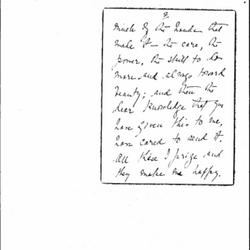 2
much of the wonder that
make it — the care, the
power, the skill to do
more and always toward
beauty; and then the
dear knowledge that you
have given this to me,
have cared to send it.
All these I prize and
they make me happy.